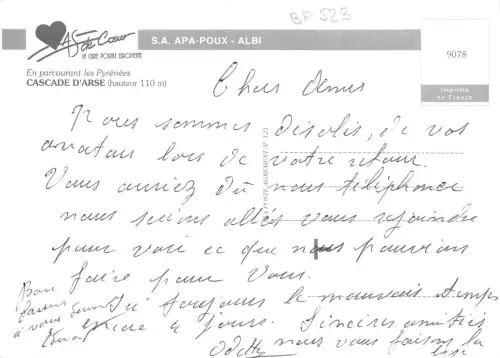 BF 523
AS de Coeur
LA CARTE POSTALE EUROPEENNE
S.A. APA-POUX - ALBI
9078
Imprimé
en France
En parcourant les Pyrénées
CASCADE D'ARSE (hauteur 110 m)
Chers amis
Nous sommes désolés, de vos
lors de votre retour.
Vous auriez dû nous téléphoner
nous serions allés vous rejoindre
pour voir ce que nous pouvions
faire pour vous.
toujours le mauvais temps
encore 4 jours. Sincères amitiés
Odette nous vous faisons la bise
Bons
à vous
POSTE AGREMENT N° 121